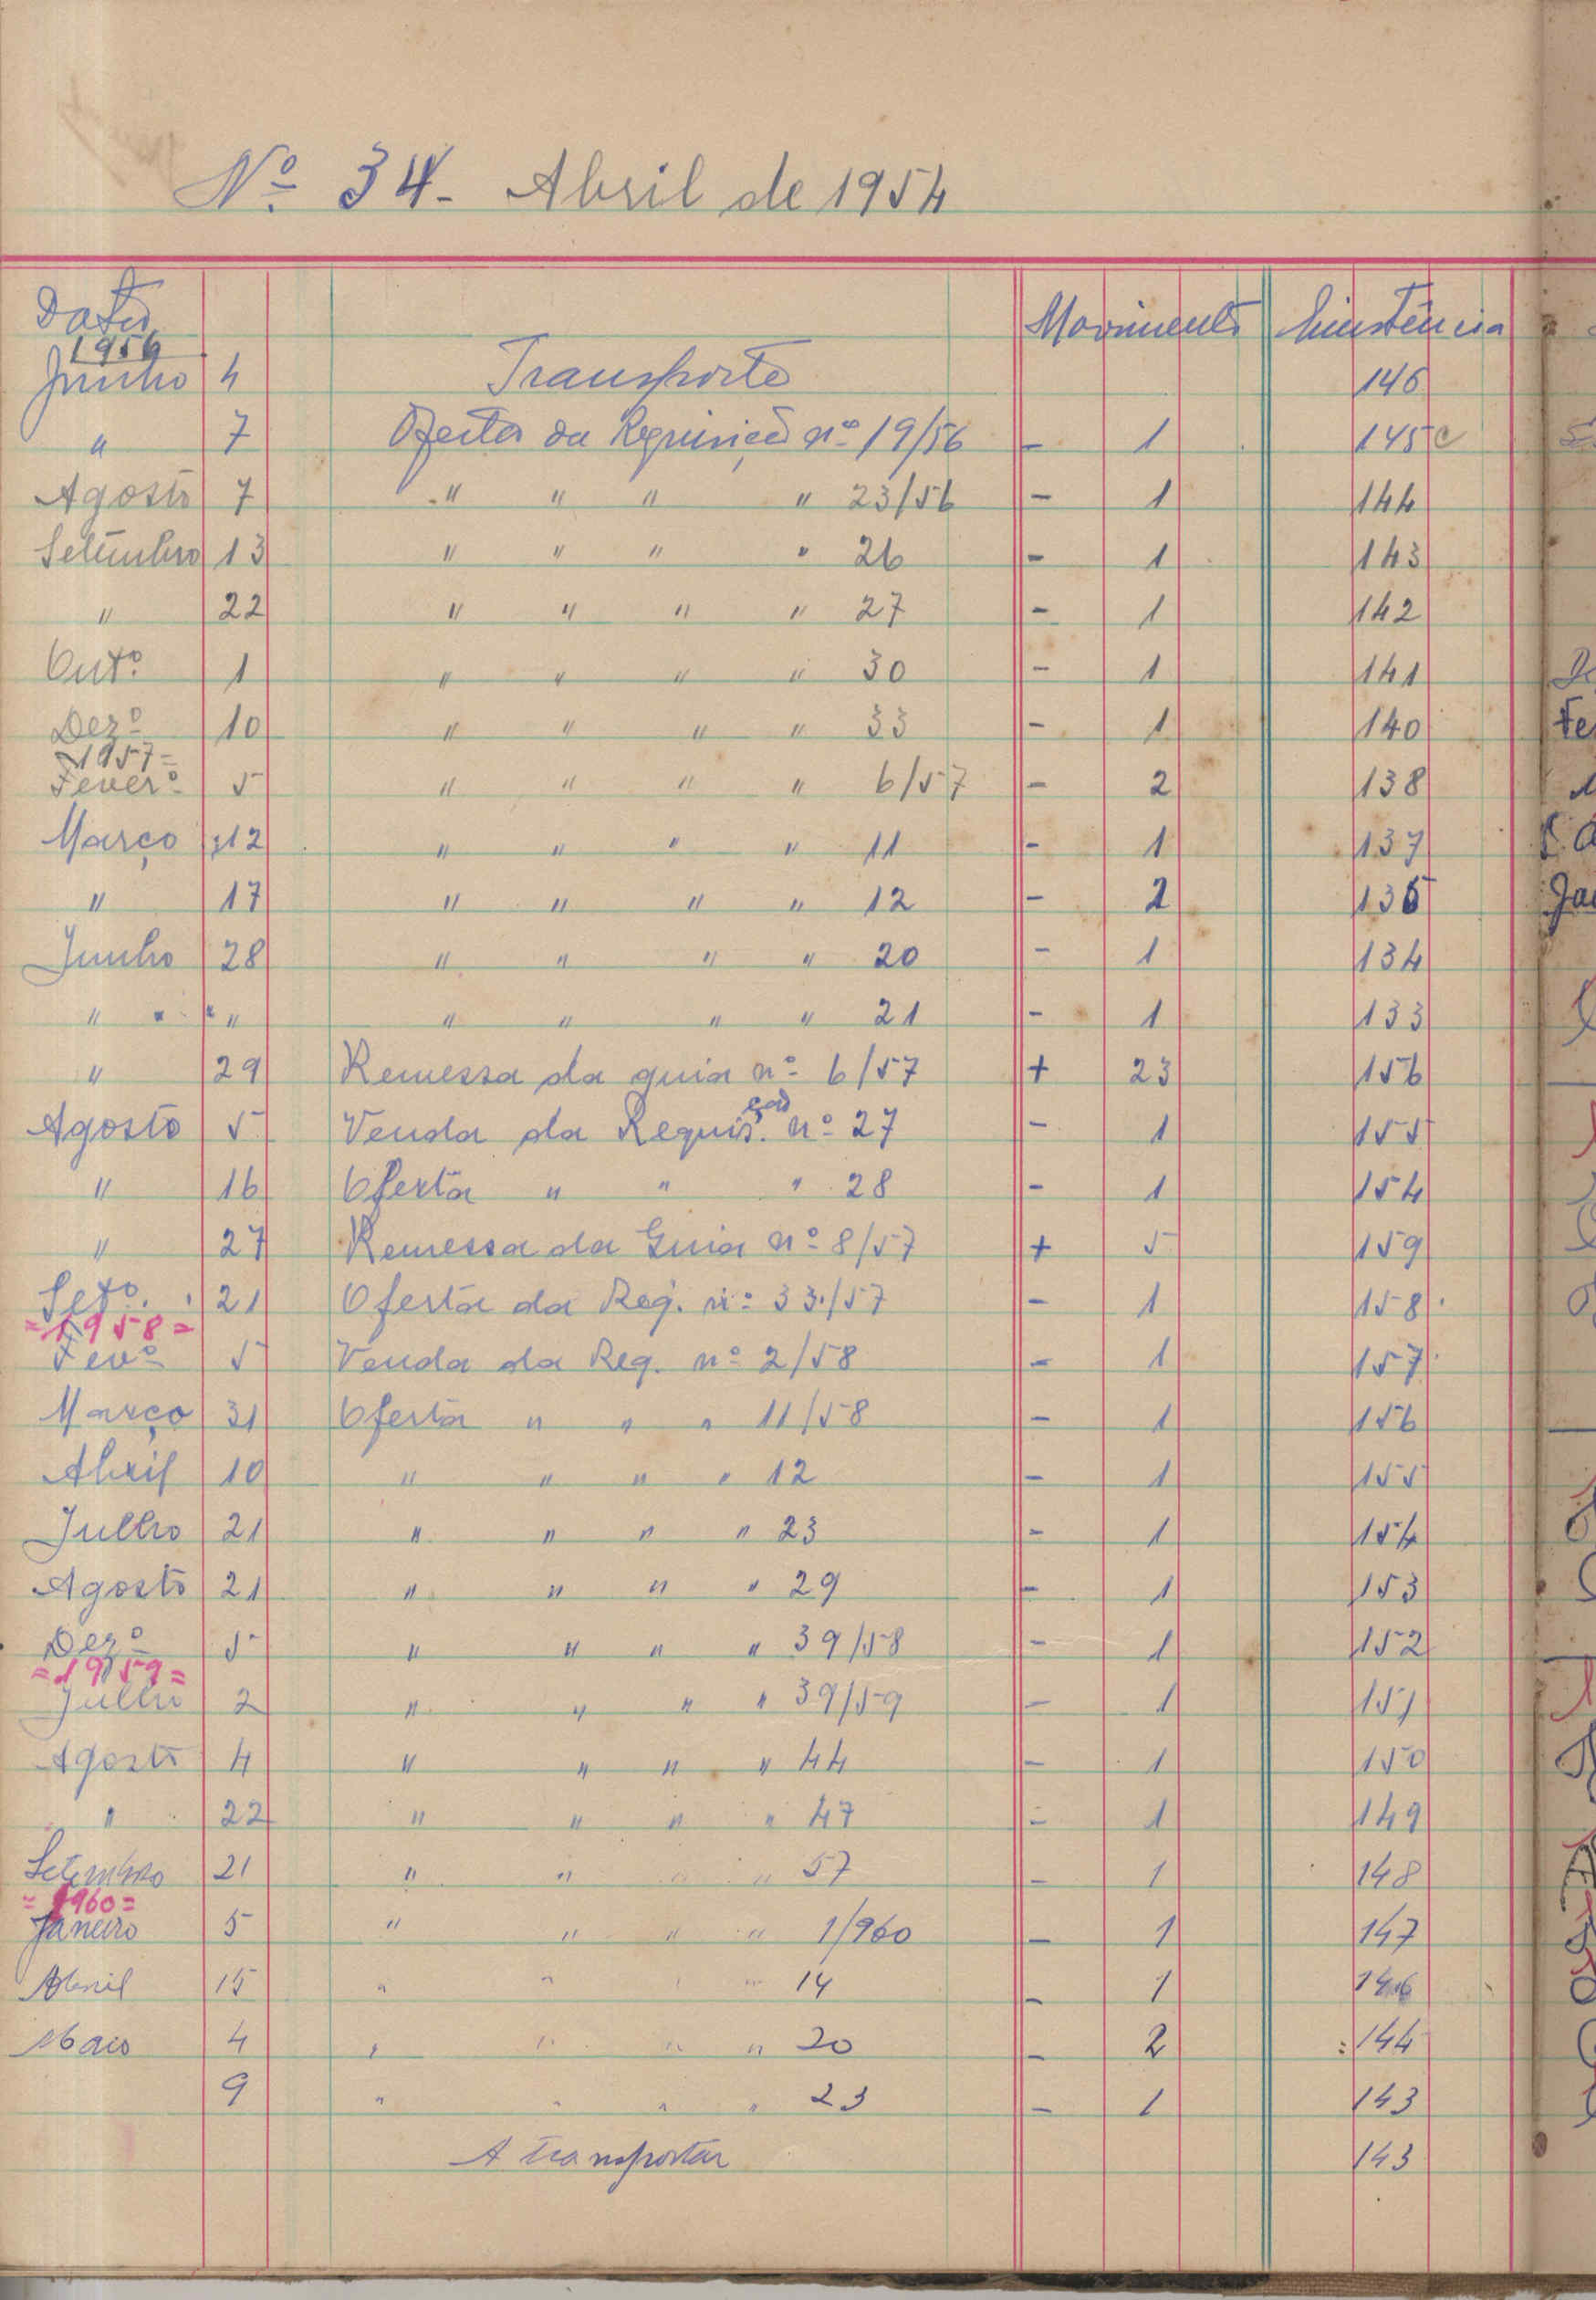 Nº 34 - Abril de 1954
Datas Movimento Existência
1956
Junho 4 Transporte 146
" 7 Oferta da Requisição nº 19/56 - 1 145 c
Agosto 7 " " " " 23/56 - 1 144
Setembro 13 " " " " 26 - 1 143
" 22 " " " " 27 - 1 142
Outº 1 " " " " 30 - 1 141
Dezº 10 " " " " 33 - 1 140
1957=
Feverº 5 " " " " 6/57 - 2 138
Março 12 " " " " 11 - 1 137
" 17 " " " " 12 - 2 135
Junho 28 " " " " 20 - 1 134
" " " " " " " 21 - 1 133
" 29 Remessa da guia nº 6/57 + 23 156
Agosto 5 Venda da Requisição nº 27 - 1 155
" 16 Oferta " " " 28 - 1 154
" 27 Remessa da Guia nº 8/57 + 5 159
Setº. 21 Oferta da Req. nº 33/57 - 1 158
=1958=
Fevº 5 Venda da Req. nº 2/58 - 1 157
Março 31 Oferta " " " 11/58 - 1 156
Abril 10 " " " " 12 - 1 155
Julho 21 " " " " 23 - 1 154
Agosto 21 " " " " 29 - 1 153
Dezº 5 " " " " 39/58 - 1 152
=1959=
Julho 2 " " " " 39/59 - 1 151
Agosto 4 " " " " 44 - 1 150
" 22 " " " " 47 - 1 149
Setembro 21 " " " " 57 - 1 148
=1960=
Janeiro 5 " " " " 1/960 - 1 147
Abril 15 " " " " 14 - 1 146
Maio 4 " " " " 20 - 2 144
9 " " " " 23 - 1 143
A transportar 143